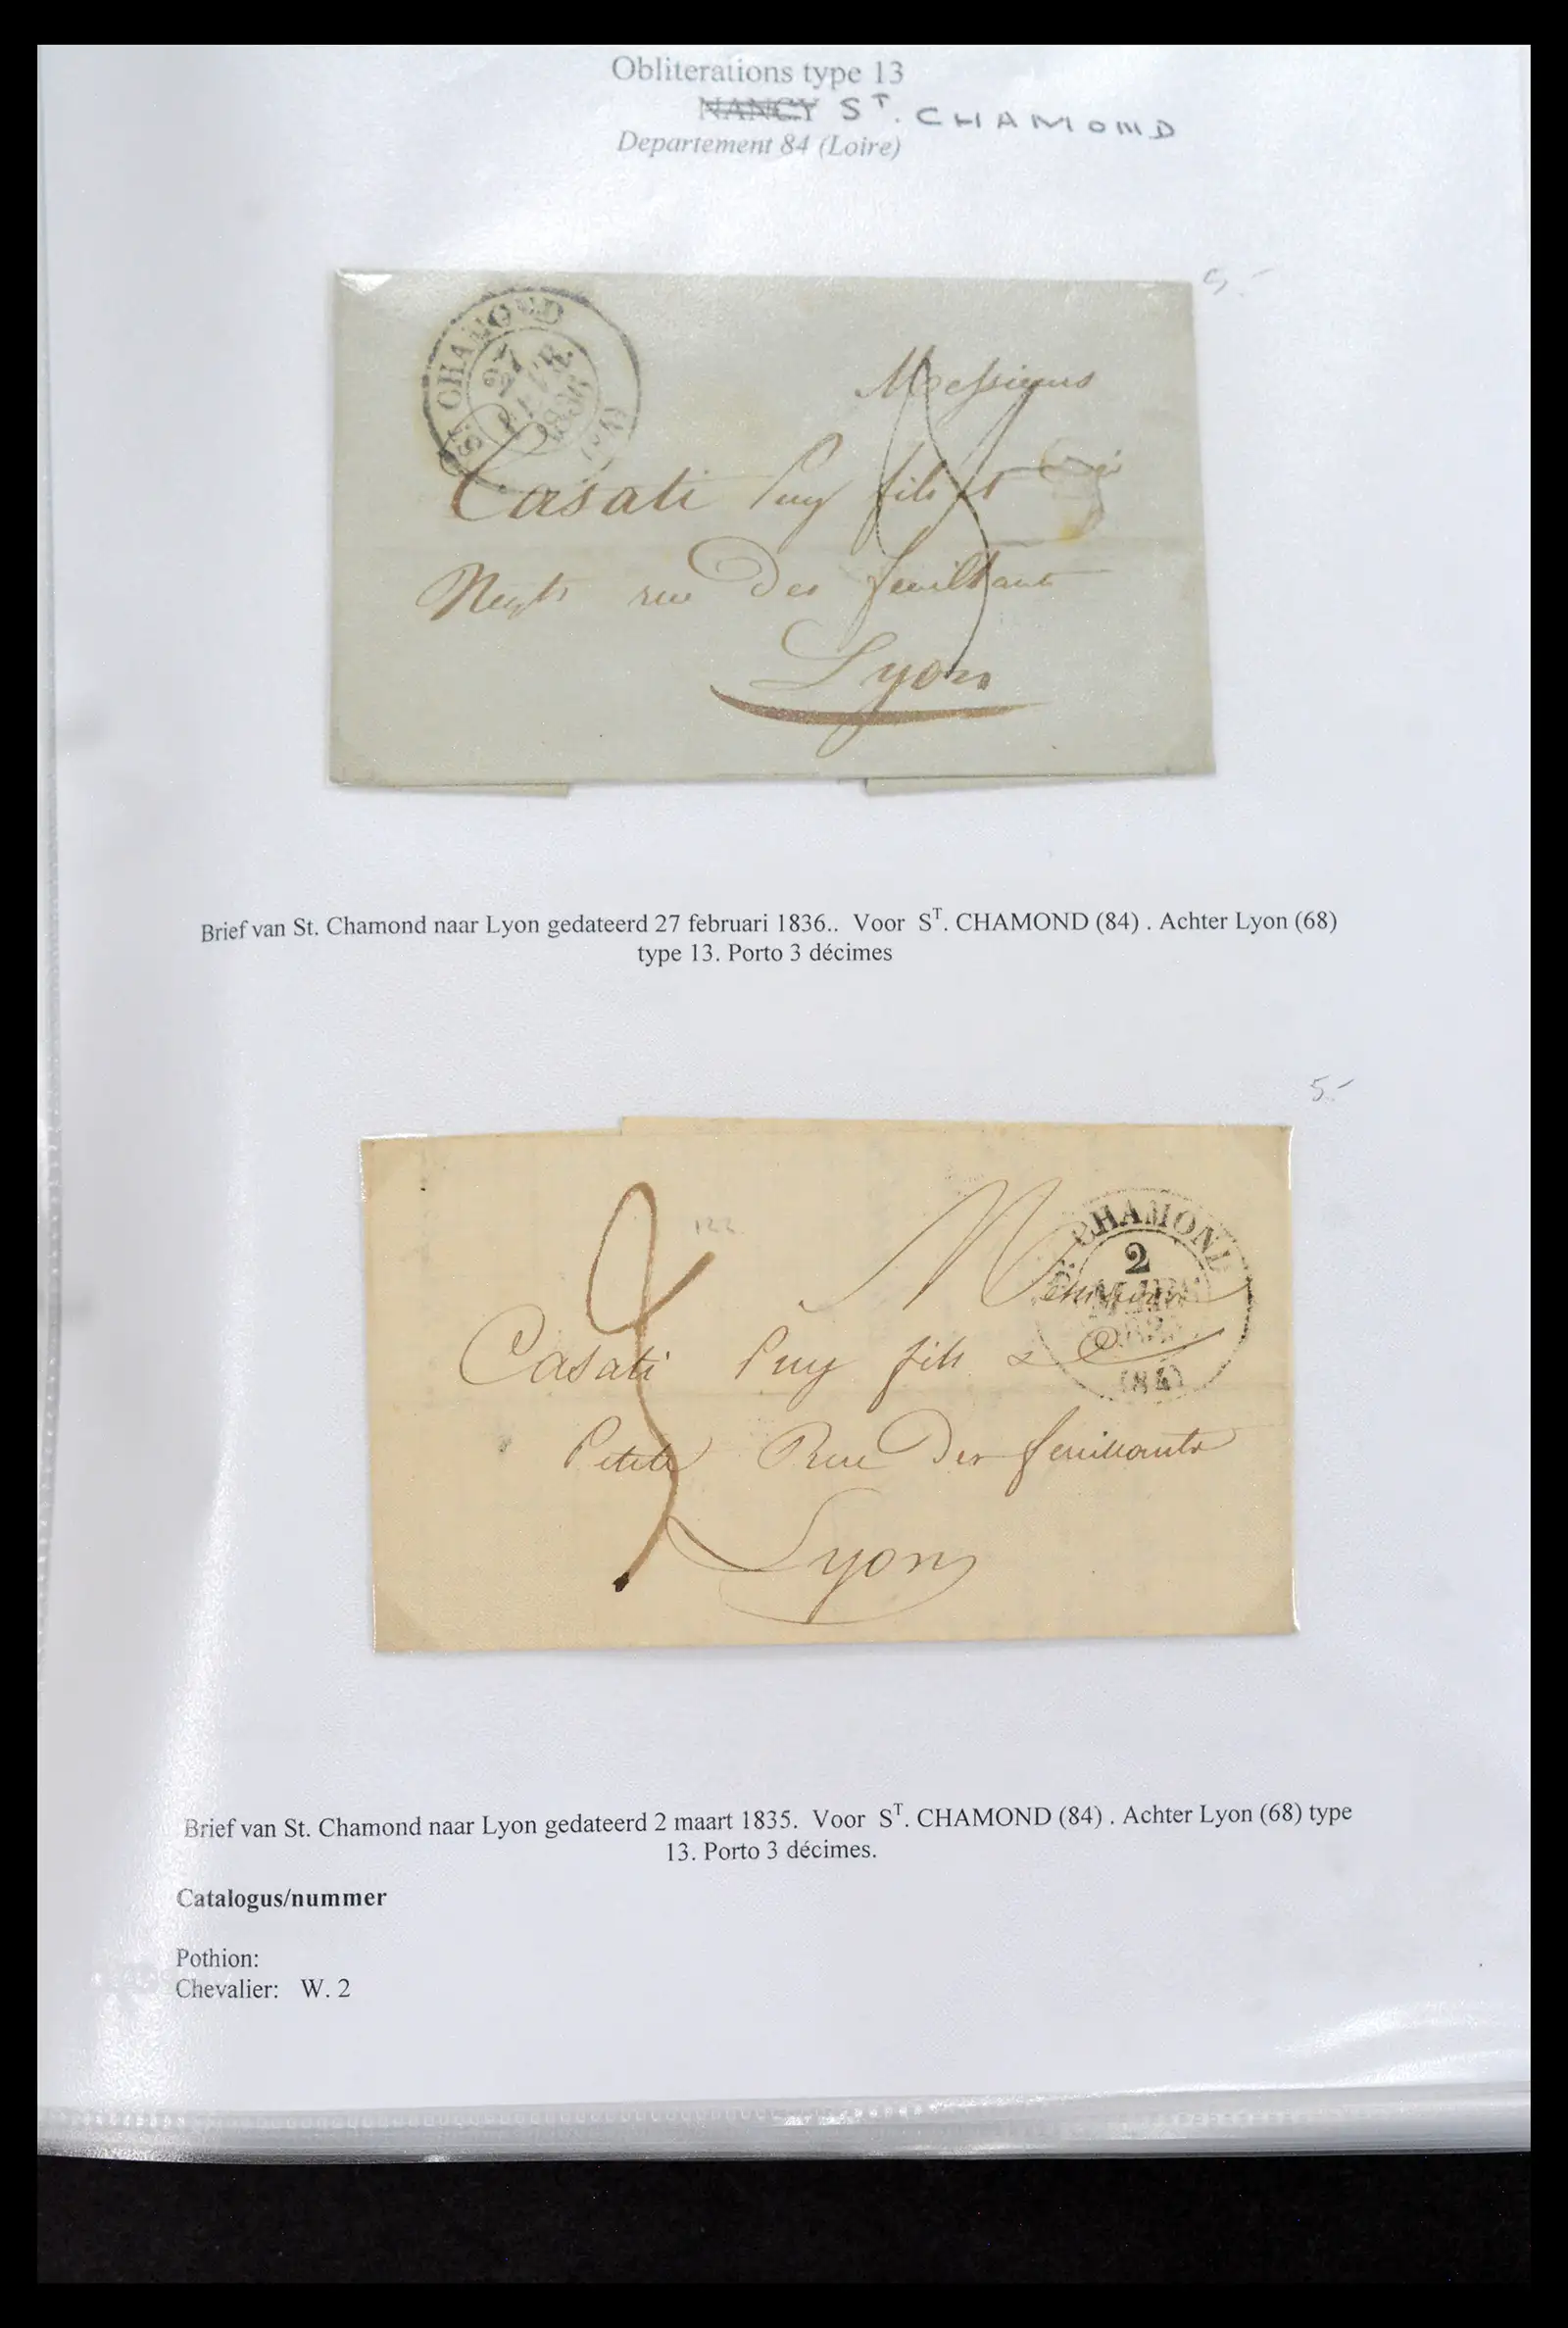 Obliterations type 13
NANCY ST. CHAMOND
Departement 84 (Loire)
5.-
ST CHAMOND
27
1836
(84)
Messieurs
Casati Puy fils et Cie
Negts rue des feuillants
Lyon
Brief van St. Chamond naar Lyon gedateerd 27 februari 1836.. Voor ST. CHAMOND (84) . Achter Lyon (68)
type 13. Porto 3 décimes
5.-
122
CHAMOND
2
(84)
Messieurs
Casati Puy fils & Cie
Petite Rue Des feuillants
Lyon
Brief van St. Chamond naar Lyon gedateerd 2 maart 1835. Voor ST. CHAMOND (84) . Achter Lyon (68) type
13. Porto 3 décimes.
Catalogus/nummer
Pothion:
Chevalier: W. 2